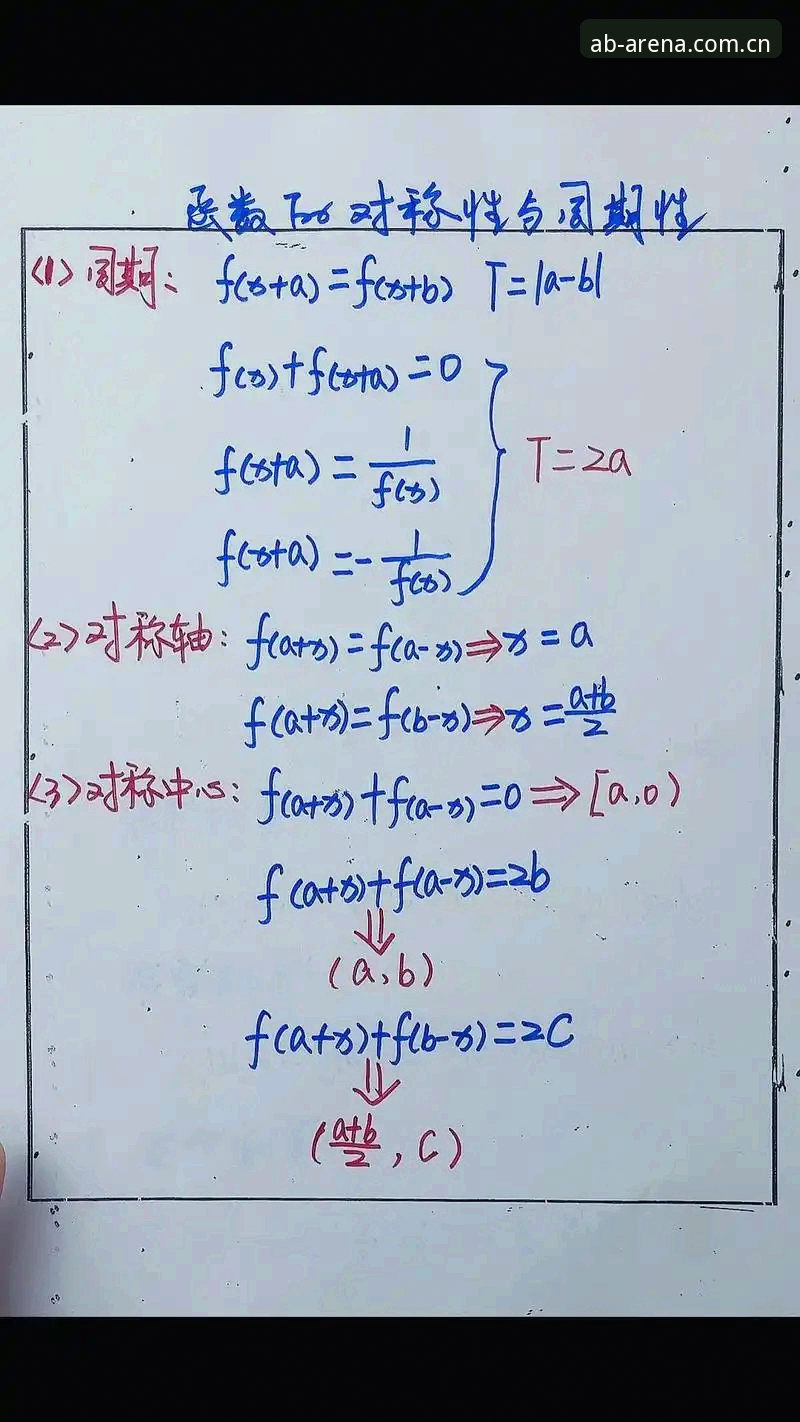 ab-arena.com.cn
函数的对称性与周期性
(1)周期: f(x+a)=f(x+b) T=|a-b|
f(x)+f(x+a)=0
f(x+a)=1/f(x)
T=2a
f(x+a)=-1/f(x)
(2)对称轴: f(a+x)=f(a-x)⇒x=a
f(a+x)=f(b-x)⇒x=a+b/2
(3)对称中心: f(a+x)+f(a-x)=0⇒[a,0)
f(a+x)+f(a-x)=2b
⇓
(a,b)
f(a+x)+f(b-x)=2C
⇓
(a+b/2,C)